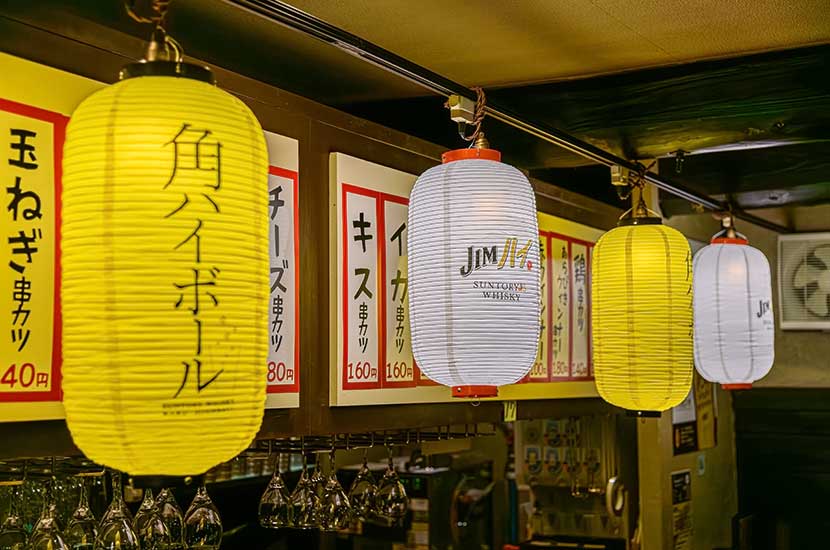 玉ねぎ串カツ
40円
角ハイボール
チーズ串カツ
80円
キス串カツ
160円
イカ串カツ
160円
JIMハイ
SUNTORY
WHISKY
あらびきウィンナー
180円
鶏串カツ
140円
JIM